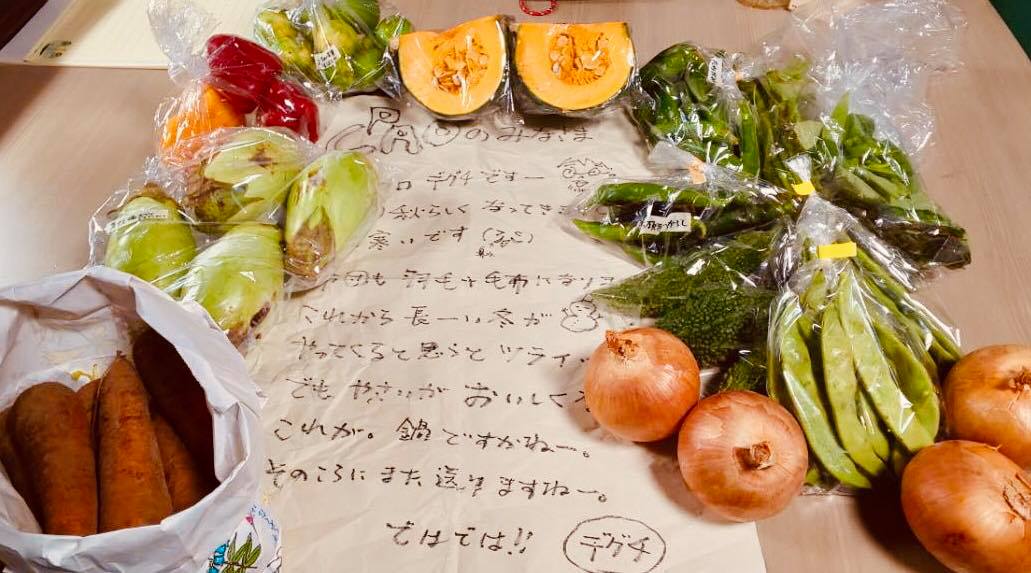 PAOのみなさま
デグチですー
秋らしくなってき
寒いです
も羽毛+毛布になり
これから長ーい冬が
やってくると思うとツライ
でもやさいがおいしく
これが。鍋ですかねー。
そのころにまた送りますねー。
ではでは!!
デグチ